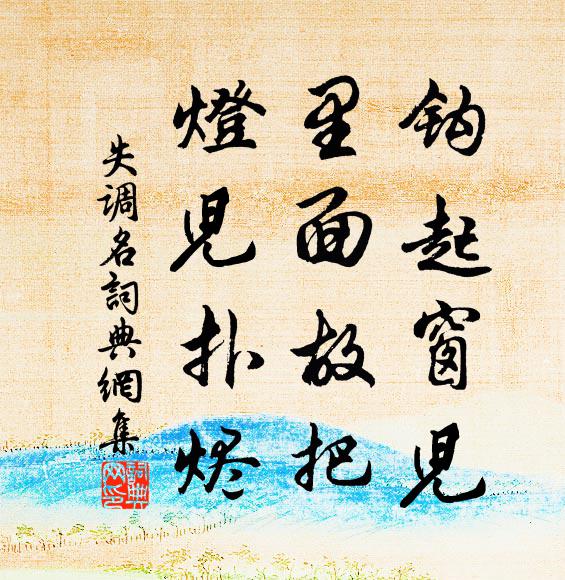 钩起窗兒
里面故把
燈兒扑烬
失调名詞典網集